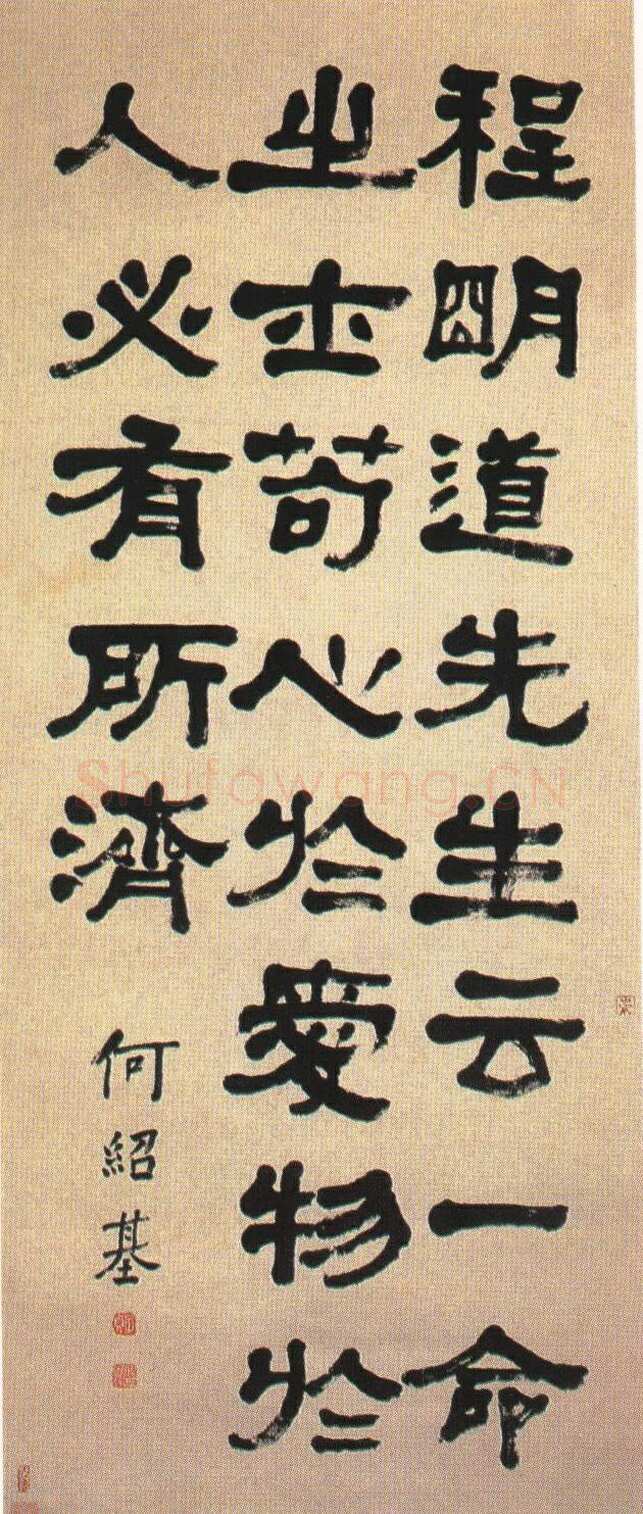 程明道先生云一命
之士苟心於愛物於
人必有所濟
何紹基
Shufawang.CN